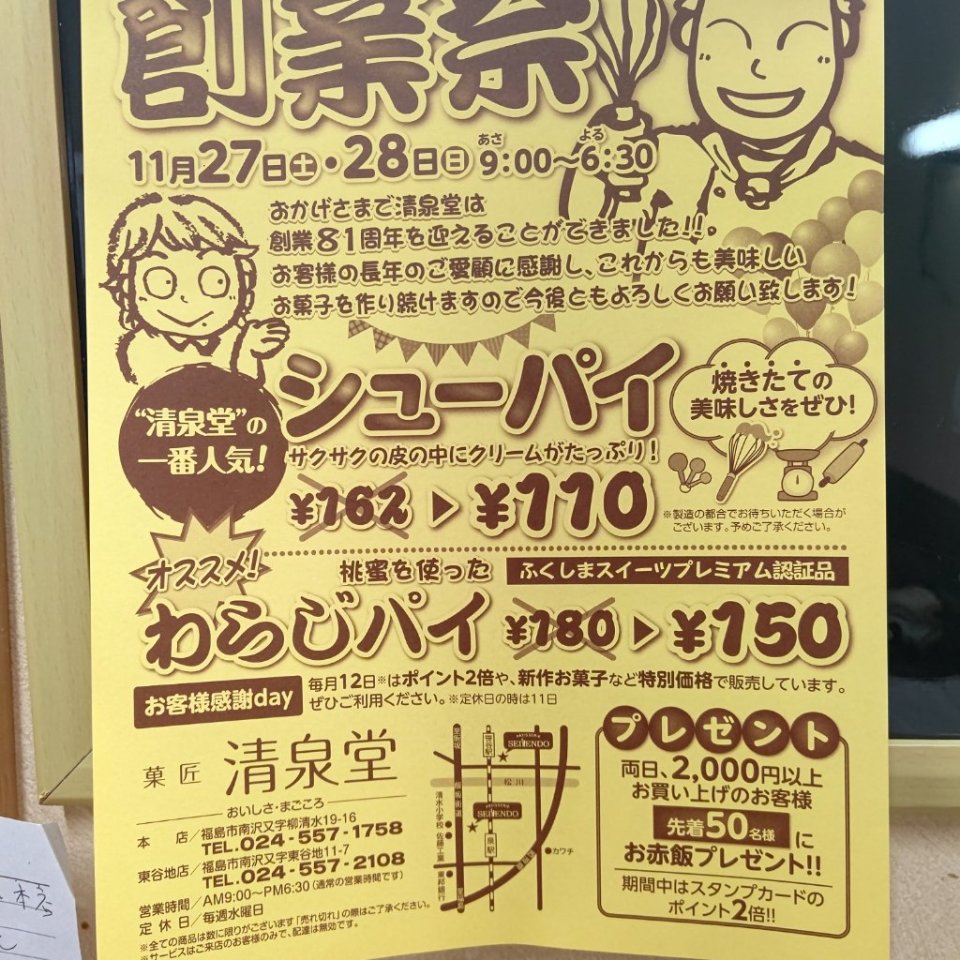 創業祭
11月27日(土)・28日(日) 9:00～6:30
あさ
よる
おかげさまで清泉堂は
創業81周年を迎えることができました!!。
お客様の長年のご愛顧に感謝し、これからも美味しい
お菓子を作り続けますので今後ともよろしくお願い致します!
“清泉堂”の
一番人気!
シューパイ
サクサクの皮の中にクリームがたっぷり!
¥162 ▶ ¥110
焼きたての
美味しさをぜひ!
※製造の都合でお待ちいただく場合が
ございます。予めご了承ください。
オススメ!
桃蜜を使った
ふくしまスイーツプレミアム認証品
わらじパイ
¥180 ▶ ¥150
お客様感謝day
毎月12日※はポイント2倍や、新作お菓子など特別価格で販売しています。
ぜひご利用ください。※定休日の時は11日
菓匠 清泉堂
おいしさ・まごころ
本店/福島市南沢又字柳清水19-16
TEL.024-557-1758
東谷地店/福島市南沢又字東谷地11-7
TEL.024-557-2108
営業時間/AM9:00～PM6:30(通常の営業時間です)
定休日/毎週水曜日
※全ての商品は数に限りがございます「売れ切れ」の際はご了承ください。
※サービスはご来店のお客様のみで、配達は無効です。
笹谷駅
SEISENDO
松川
清水小学校
佐藤工業
SEISENDO
泉駅
カワチ
東邦銀行
プレゼント
両日、2,000円以上
お買い上げのお客様
先着50名様に
お赤飯プレゼント!!
期間中はスタンプカードの
ポイント2倍!!